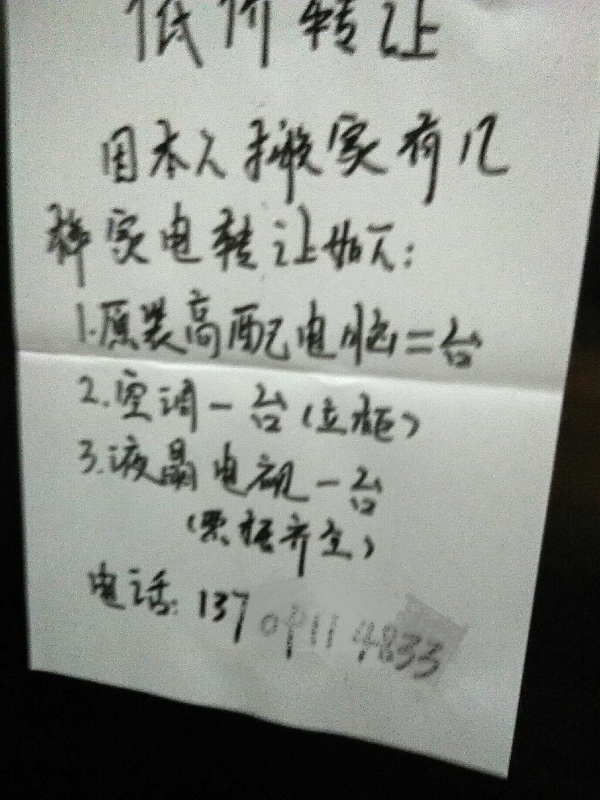 低价转让
因本人搬家有几
样家电转让如下:
1.原装高配电脑二台
2.空调一台(立柜)
3.液晶电视一台
(票据齐全)
电话:13709114833